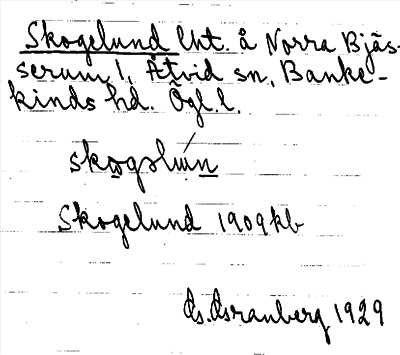 Skogelund lht. å Norra Bjäs-
serum 1, Åtvid sn, Banke-
kinds hd. Ögl. l.
skogslun
Skogelund 1909 kb
1929